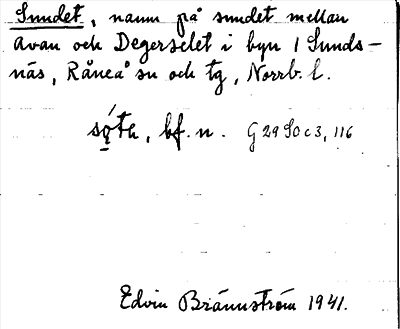 Sundet, namn på sundet mellan
Avan och Degerselet i byn / Sunds-
näs, Råneå sn och tg, Norrb. l.
bf. n. G 29 So c 3, 116
Edvin Brännström 1941.